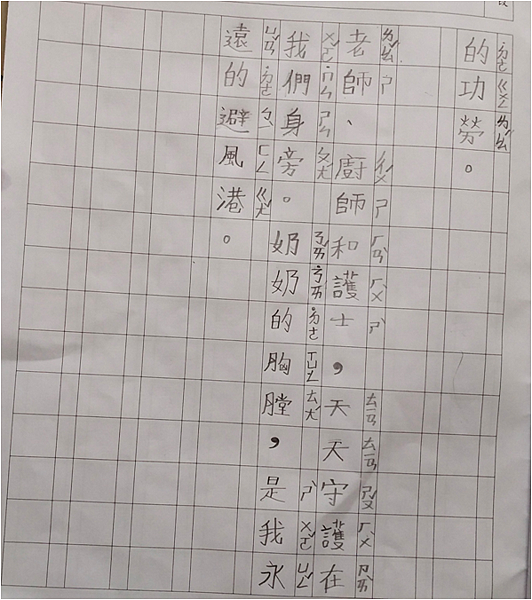 的功勞。
老師、廚師和護士，天天守護在
我們身旁。奶奶的胸膛，是我永
遠的避風港。